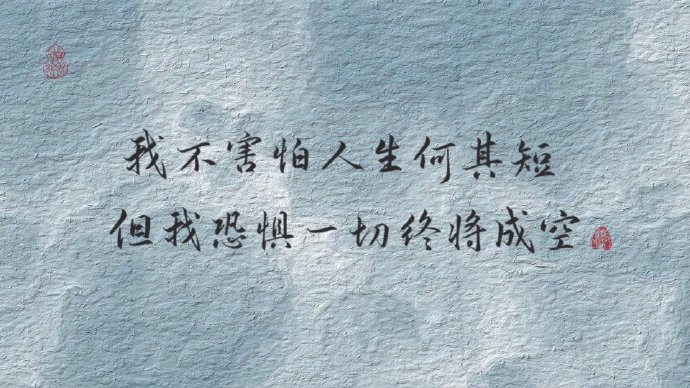 我不害怕人生何其短
但我恐惧一切终将成空